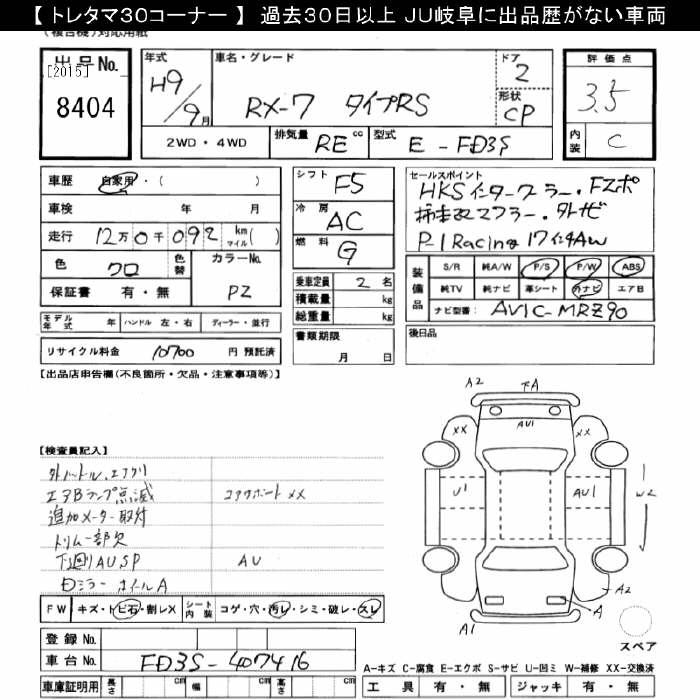 【 トレタマ30コーナー 】 過去30日以上 JU岐阜に出品歴がない車両
(複合機)対応用紙
出品No.
[2015]
8404
年式
H9/9月
車名・グレード
RX-7 タイプRS
ドア
2
形状
CP
評価点
3.5
内装
C
2WD・4WD
排気量
RE cc
型式
E - FD3S
車歴 自家用・( )
車検 年 月
走行 12万0千092 km マイル( )
色 クロ 色替
カラーNo.
PZ
保証書 有・無
シフト
F5
冷房
AC
燃料
G
セールスポイント
HKSインタークーラー.FZポ
柿本改マフラー.外ナビ
P-1 Racing 17インチAW
装備品
S/R 純A/W P/S P/W ABS
純TV 純ナビ 革シート カナビ エアB
ナビ型番: AVIC-MRZ90
乗車定員 2 名
積載量 kg
総重量 kg
モデル年式 年 ハンドル 左・右 ディーラー・並行
リサイクル料金 10700 円 預託済
書類期限
月 日
後日品
【出品店申告欄(不良箇所・欠品・注意事項等)】
【検査員記入】
エアBランプ点滅 コアサポートXX
追加メーター取付
トリム一部欠
下廻りAU SP AU
A2
下A
AU1
XX
XX
U1
AU1
W2
A2
A
A1
スペア
FW キズ・トビ石・割レX シート内装 コゲ・穴・汚レ・シミ・破レ・スレ
登録No.
車台No. FD3S-407416
車庫証明用 長さ cm 幅 cm 高さ cm
A―キズ C―腐食 E―エクボ S―サビ U―凹ミ W―補修 XX―交換済
工具 有・無 ジャッキ 有・無